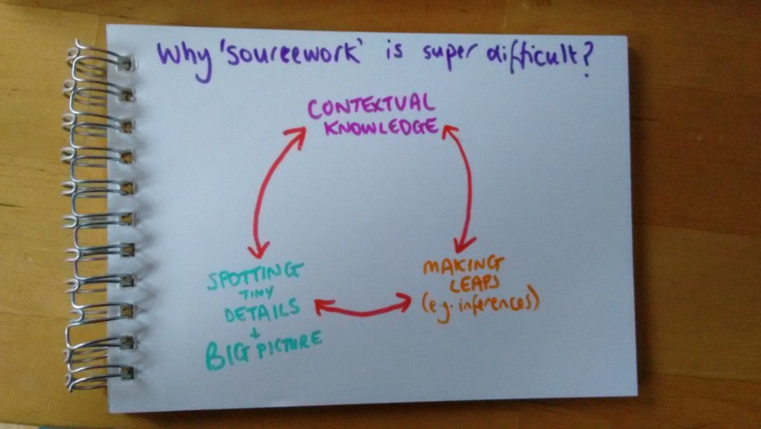 Why 'sourcework' is super difficult?
CONTEXTUAL
KNOWLEDGE
SPOTTING
TINY
DETAILS
+
BIG PICTURE
MAKING
LEAPS
(e.g. inferences)